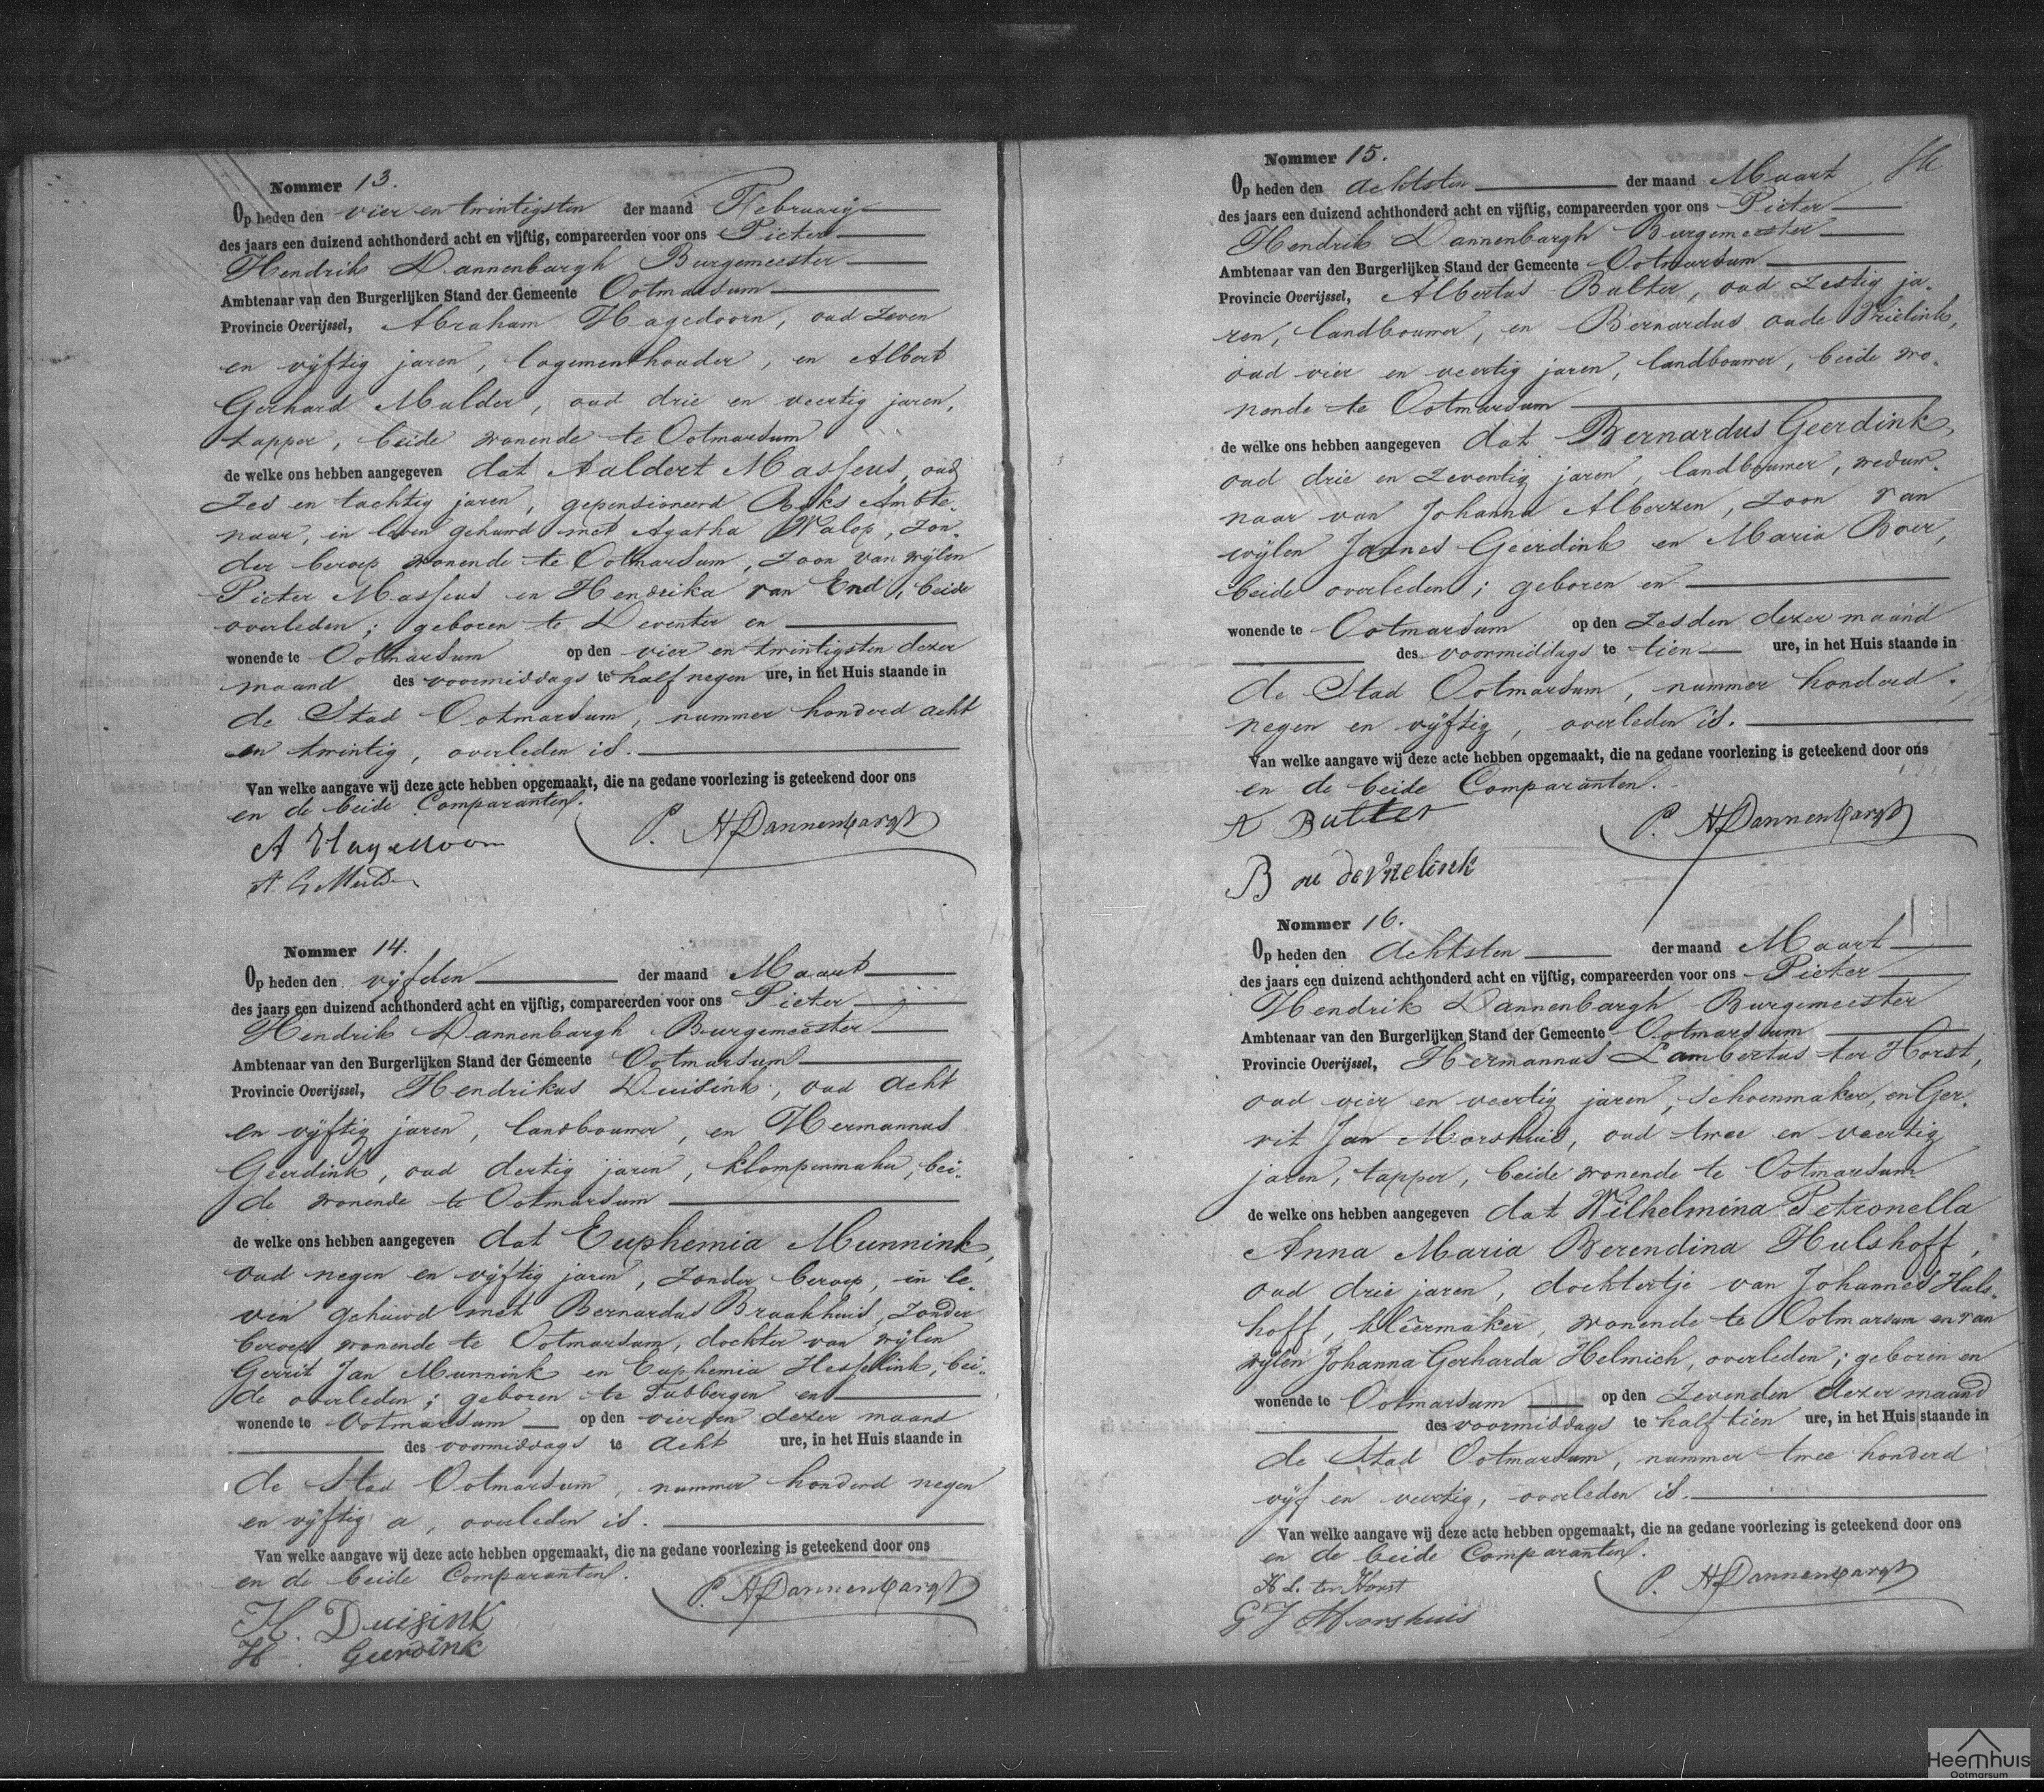 Nommer 13.
Op heden den vier en twintigsten der maand February
des jaars een duizend achthonderd acht en vijftig, compareerden voor ons Pieter
Hendrik Dannenbargh Burgemeester
Ambtenaar van den Burgerlijken Stand der Gemeente Ootmarsum
Provincie Overijssel, Abraham Hagedoorn, oud zeven
en vijftig jaren, logementhouder, en Albert
Gerhard Mulder, oud drie en veertig jaren,
tapper, beide wonende te Ootmarsum
de welke ons hebben aangegeven dat Aaldert Masseus, oud
zes en tachtig jaren, gepensioneerd Rijks Ambte-
naar, in leven gehuwd met Agatha Walop, zon-
der beroep wonende te Ootmarsum, zoon van wijlen
Pieter Masseus en Hendrika van End, beide
overleden; geboren te Deventer en
wonende te Ootmarsum op den vier en twintigsten dezer
maand des voormiddags te half negen ure, in het Huis staande in
de Stad Ootmarsum, nummer honderd acht
en twintig, overleden is.
Van welke aangave wij deze acte hebben opgemaakt, die na gedane voorlezing is geteekend door ons
en de beide Comparanten.
A Hagedoorn P. H Dannenbargh
A. G Mulder
Nommer 14.
Op heden den vijfden der maand Maart
des jaars een duizend achthonderd acht en vijftig, compareerden voor ons Pieter
Hendrik Dannenbargh Burgemeester
Ambtenaar van den Burgerlijken Stand der Gemeente Ootmarsum
Provincie Overijssel, Hendrikus Duisink, oud acht
en vijftig jaren, landbouwer, en Hermannus
Geerdink, oud dertig jaren, klompenmaker, bei-
de wonende te Ootmarsum
de welke ons hebben aangegeven dat Euphemia Munnink,
oud negen en vijftig jaren, zonder beroep, in le-
ven gehuwd met Bernardus Braakhuis, zonder
beroep wonende te Ootmarsum, dochter van wijlen
Gerrit Jan Munnink en Euphemia Hesselink, bei-
de overleden; geboren te Tubbergen en
wonende te Ootmarsum op den vierden dezer maand
des voormiddags te acht ure, in het Huis staande in
de Stad Ootmarsum, nummer honderd negen
en vijftig a, overleden is.
Van welke aangave wij deze acte hebben opgemaakt, die na gedane voorlezing is geteekend door ons
en de beide Comparanten.
P. H Dannenbargh
H. Duisink
H. Geerdink
Nommer 15.
Op heden den achtsten der maand Maart
des jaars een duizend achthonderd acht en vijftig, compareerden voor ons Pieter
Hendrik Dannenbargh Burgemeester
Ambtenaar van den Burgerlijken Stand der Gemeente Ootmarsum
Provincie Overijssel, Albertus Bulter, oud zestig ja-
ren, landbouwer, en Bernardus oude Vrielink,
oud vier en veertig jaren, landbouwer, beide wo-
nende te Ootmarsum
de welke ons hebben aangegeven dat Bernardus Geerdink,
oud drie en zeventig jaren, landbouwer, weduw-
naar van Johanna Alberzen, zoon van
wijlen Jannes Geerdink en Maria Boer,
beide overleden; geboren en
wonende te Ootmarsum op den zesden dezer maand
des voormiddags te tien ure, in het Huis staande in
de Stad Ootmarsum, nummer honderd
negen en vijftig, overleden is.
Van welke aangave wij deze acte hebben opgemaakt, die na gedane voorlezing is geteekend door ons
en de beide Comparanten.
A Bulter P. H Dannenbargh
B ou de Vrielink
Nommer 16.
Op heden den achtsten der maand Maart
des jaars een duizend achthonderd acht en vijftig, compareerden voor ons Pieter
Hendrik Dannenbargh Burgemeester
Ambtenaar van den Burgerlijken Stand der Gemeente Ootmarsum
Provincie Overijssel, Hermannus Lambertus ter Horst,
oud vier en veertig jaren, schoenmaker, en Ger-
rit Jan Morshuis, oud twee en veertig
jaren, tapper, beide wonende te Ootmarsum
de welke ons hebben aangegeven dat Wilhelmina Petronella
Anna Maria Berendina Hulshoff,
oud drie jaren, dochtertje van Johannes Huls-
hoff, kleêrmaker, wonende te Ootmarsum en van
wijlen Johanna Gerharda Helmich, overleden; geboren en
wonende te Ootmarsum op den zevenden dezer maand
des voormiddags te half tien ure, in het Huis staande in
de Stad Ootmarsum, nummer twee honderd
vijf en veertig, overleden is.
Van welke aangave wij deze acte hebben opgemaakt, die na gedane voorlezing is geteekend door ons
en de beide Comparanten.
H L. ter Horst P. H Dannenbargh
G J Morshuis
Heemhuis
Ootmarsum